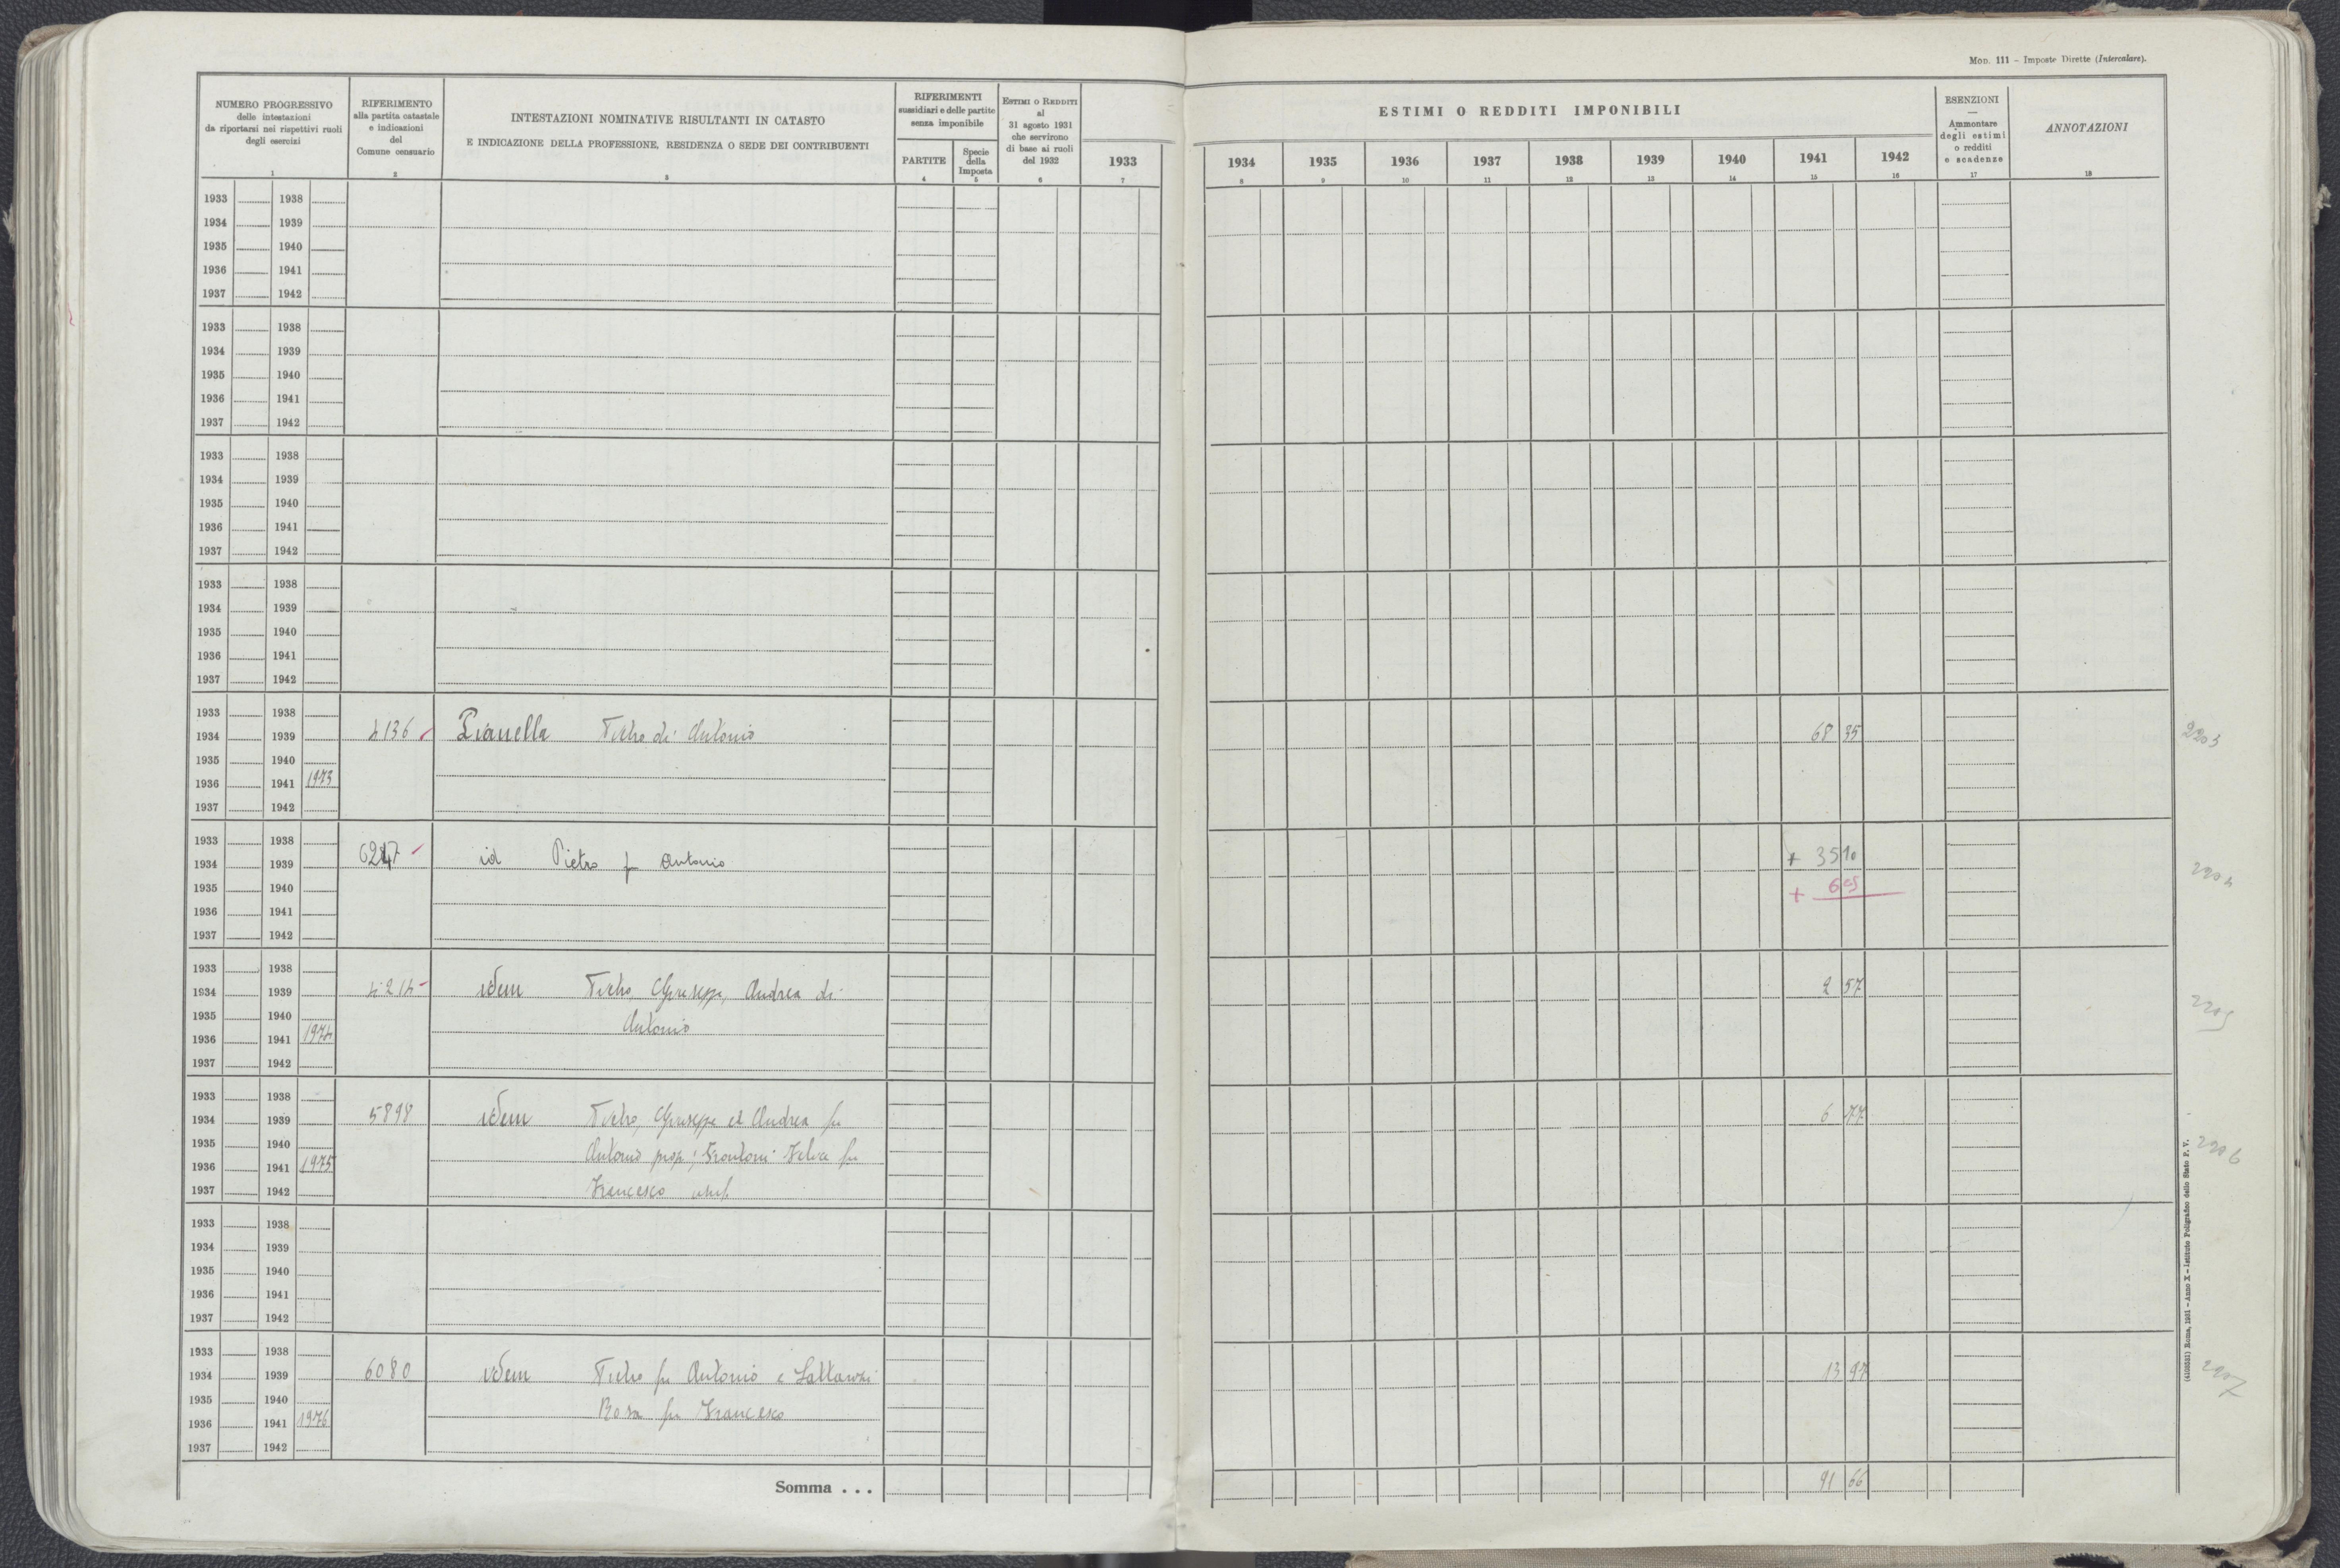 Mod. 111 - Imposte Dirette (Intercalare).
NUMERO PROGRESSIVO
delle intestazioni
da riportarsi nei rispettivi ruoli
degli esercizi
1
RIFERIMENTO
alla partita catastale
e indicazioni
del
Comune censuario
2
INTESTAZIONI NOMINATIVE RISULTANTI IN CATASTO
E INDICAZIONE DELLA PROFESSIONE, RESIDENZA O SEDE DEI CONTRIBUENTI
3
RIFERIMENTI
sussidiari e delle partite
senza imponibile
PARTITE
4
Specie
della
Imposta
5
Estimi o Redditi
al
31 agosto 1931
che servirono
di base ai ruoli
del 1932
6
ESTIMI O REDDITI IMPONIBILI
1933 1934 1935 1936 1937 1938 1939 1940 1941 1942
7 8 9 10 11 12 13 14 15 16
ESENZIONI
—
Ammontare
degli estimi
o redditi
e scadenze
17
ANNOTAZIONI
18
1933 1938
1934 1939
1935 1940
1936 1941
1937 1942
1933 1938
1934 1939
1935 1940
1936 1941
1937 1942
1933 1938
1934 1939
1935 1940
1936 1941
1937 1942
1933 1938
1934 1939
1935 1940
1936 1941
1937 1942
1933 1938
1934 1939 4136 Pianella Pietro di Antonio 68 35 2203
1935 1940
1936 1941 1973
1937 1942
1933 1938
1934 1939 6247 id Pietro fu Antonio + 35 10 2204
1935 1940 + 6 05
1936 1941
1937 1942
1933 1938
1934 1939 4214 idem Pietro, Giuseppe, Andrea di 2 57 2205
1935 1940 Antonio
1936 1941 1974
1937 1942
1933 1938
1934 1939 5898 idem Pietro, Giuseppe ed Andrea fu 6 77 2206
1935 1940 Antonio propr; Frontoni fu
1936 1941 1975
1937 1942 Francesco usuf.
1933 1938
1934 1939
1935 1940
1936 1941
1937 1942
1933 1938
1934 1939 6080 idem Pietro fu Antonio e 13 97 2207
1935 1940 Rosa fu Francesco
1936 1941 1976
1937 1942
Somma . . . 91 66
(4103531) Roma, 1931 - Anno X - Istituto Poligrafico dello Stato P. V.